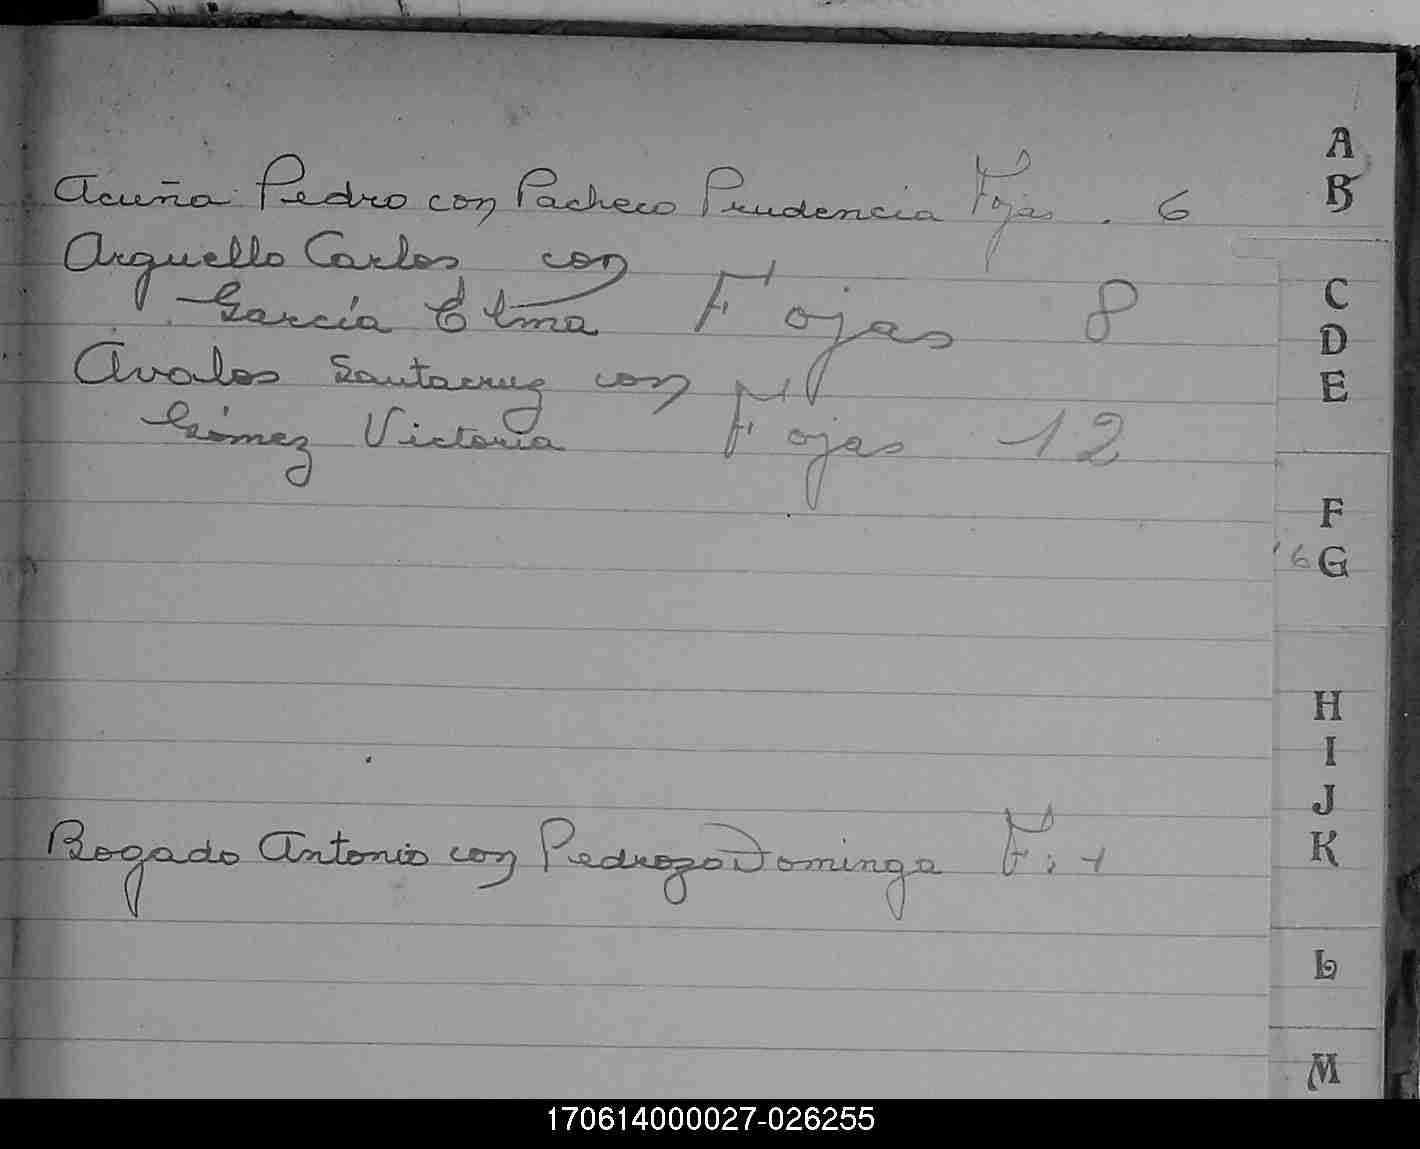 A
B
Acuña Pedro con Pacheco Prudencia Fojas. 6
Arguello Carlos con
García Elma Fojas 8
C
D
E
Avalos Santacruz con
Gómez Victoria Fojas 12
F
G
H
I
J
K
Bogado Antonio con Pedrozo Dominga F: 1
L
M
170614000027-026255